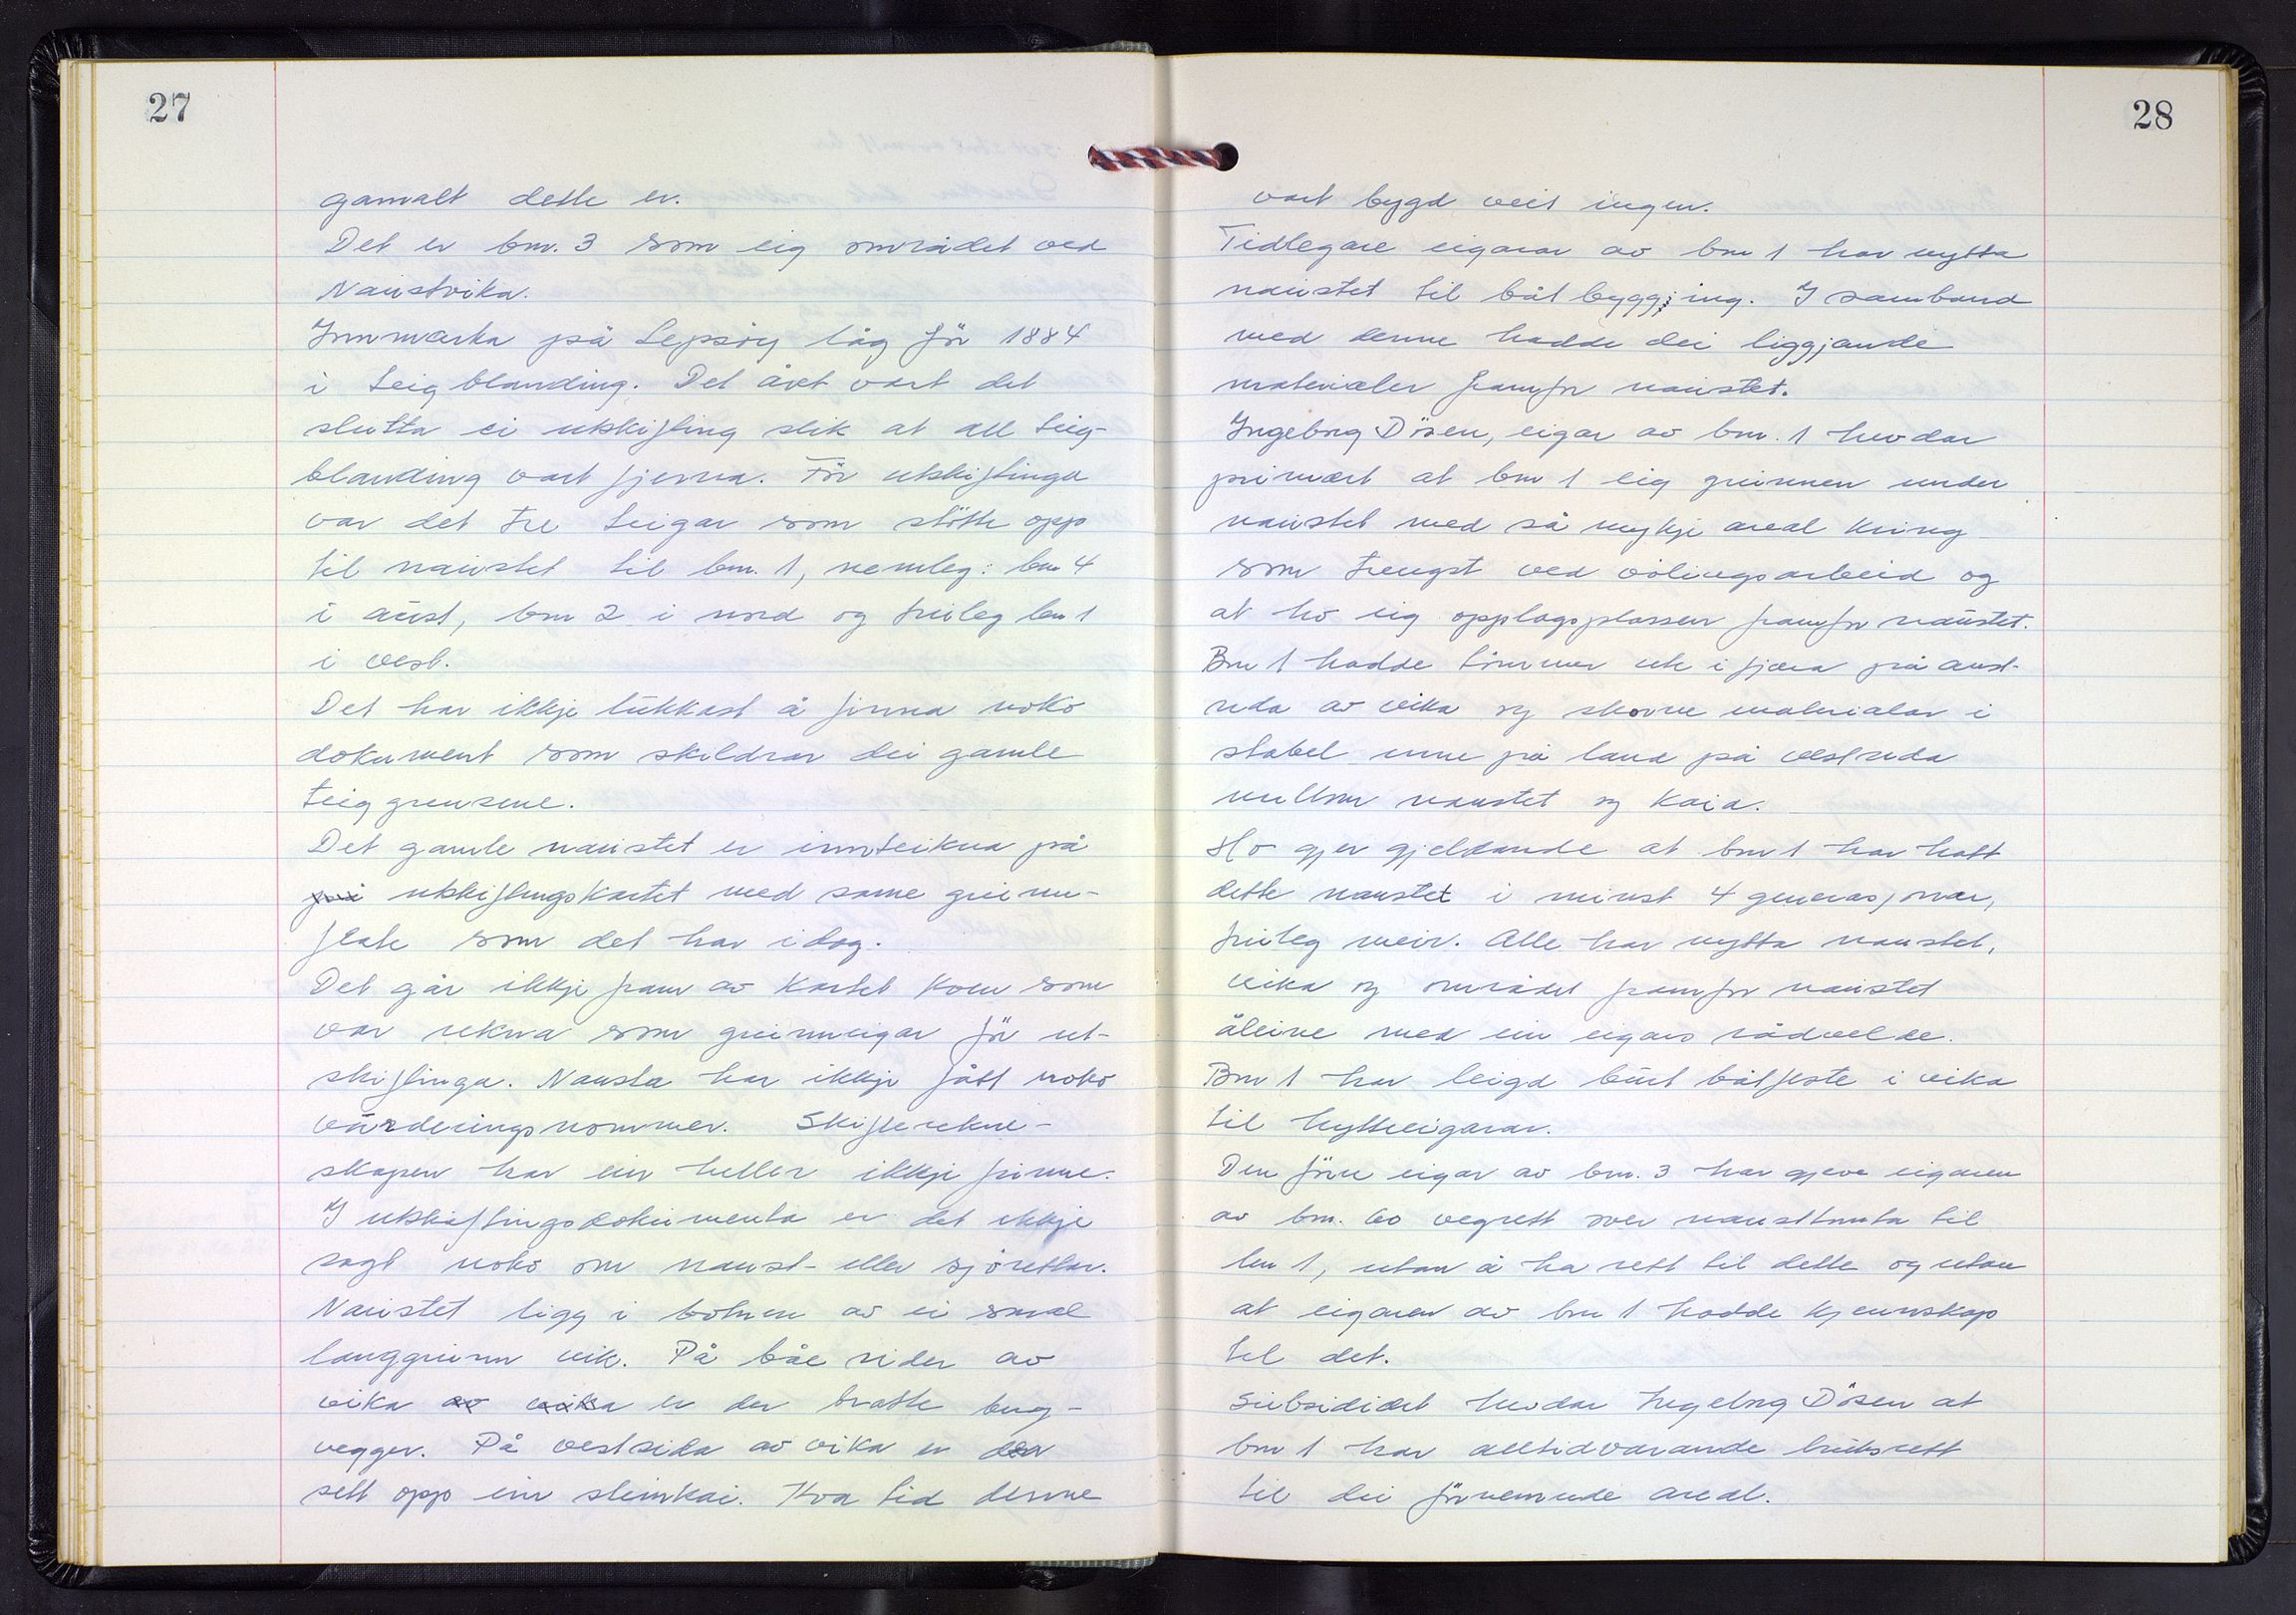 27
gamalt dette er.
Det er bnr. 3 som eig området ved
Naustvika.
Innmarka på Lepsöy låg för 1884
i teigblanding. Det året vart det
slutta ei utskifting slik at all teig-
blanding vart fjerna. För utskiftinga
var det tre teigar som stötte opp
til naustet til bnr. 1, nemleg: bnr 4
i aust, bnr 2 i nord og truleg bnr 1
i vest.
Det har ikkje lukkast å finna noko
dokument som skildrar dei gamle
teiggrensene.
Det gamle naustet er innteikna på
utskiftingskartet med same grunn-
flate som det har idag.
Det går ikkje fram av kartet kven som
var rekna som grunneigar för ut-
skiftinga. Nausta har ikkje fått noko
värderingsnommer. Skifterekne-
skapen har ein heller ikkje finne.
I utskiftingsdokumenta er det ikkje
sagt noko om naust- eller sjörettar.
Naustet ligg i botnen av ei smal
langgrunn vik. På båe sider av
vika av vika er der bratte berg-
vegger. På vestsida av vika er der
sett opp ein steinkai. Kva tid denne
28
vart bygd veit ingen.
Tidlegare eigarar av bnr 1 har nytta
naustet til båtbyggjing. I samband
med denne hadde dei liggjande
materialer framfor naustet.
Ingeborg Dösen, eigar av bnr. 1 hevdar
primært at bnr 1 eig grunnen under
naustet med så mykje areal kring
som trengst ved völingsarbeid og
at ho eig opplagsplassen framfor naustet.
Bnr 1 hadde tömmer ute i fjæra på aust-
sida av vika og skorne materialar i
stabel inne på land på vestsida
mellom naustet og kaia.
Ho gjer gjeldande at bnr 1 har hatt
dette naustet i minst 4 generasjonar,
truleg meir. Alle har nytta naustet,
vika og området framfor naustet
åleine med ein eigars rådvelde.
Bnr 1 har leigd burt båtfeste i vika
til hytteeigarar.
Den förre eigar av bnr. 3 har gjeve eigaren
av bnr. 60 vegrett over nausttomta til
bnr 1, utan å ha rett til dette og utan
at eigaren av bnr 1 hadde kjennskap
til det.
Subsidiært hevdar Ingeborg Dösen at
bnr 1 har alltidvarande bruksrett
til dei förnemnde areal.